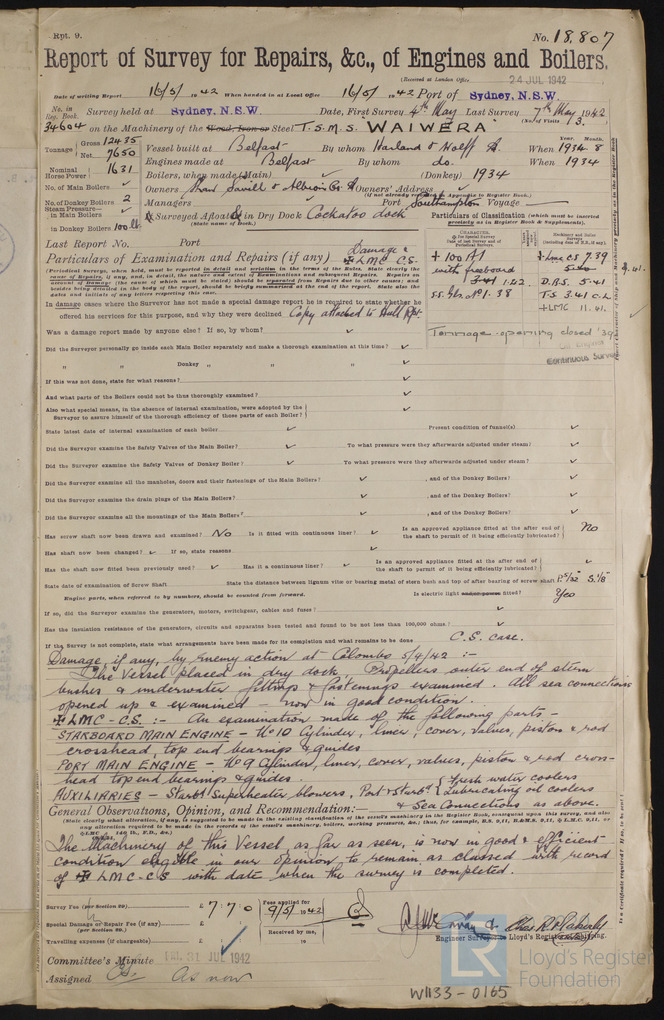 Rpt. 9.
No. 18,807
Report of Survey for Repairs, &c., of Engines and Boilers.
(Received at London Office
24 JUL 1942
Date of writing Report 16/5/1942 When handed in at Local Office 16/5/1942 Port of Sydney, N.S.W.
No. in Reg. Book. Survey held at Sydney, N.S.W. Date, First Survey 4th May Last Survey 7th May 1942
(No. of Visits 3.)
34604 on the Machinery of the Wood, Iron or Steel T.S.M.S. "WAIWERA"
Tonnage Gross 12435 Net 7650
Vessel built at Belfast By whom Harland & Wolff Ld. When Year. 1934 Month. 8
Engines made at Belfast By whom do. When 1934
Nominal Horse Power 1631
Boilers, when made (Main) ✓ (Donkey) 1934
No. of Main Boilers ✓
Owners Shaw Savill & Albion Co. Ld Owners' Address
(if not already recorded in Appendix to Register Book.)
No. of Donkey Boilers 2
Managers Port Southampton Voyage
Steam Pressure in Main Boilers ✓
in Donkey Boilers 100 lb.
If Surveyed Afloat & in Dry Dock Cockatoo dock
(State name of Dock.)
Particulars of Classification (which must be inserted precisely as in Register Book & Supplement).
Last Report No. Port
Particulars of Examination and Repairs (if any) Damage & ✠ LMC CS.
+ 100 A1
with freeboard
1.42
SS. 1.38
+LMC CS 7.39
D.B.S. 5.41
T.S 3.41 C.L
+LMC 11.41.
Tonnage opening closed '39
Oil Engines
Continuous Survey
(Periodical Surveys, when held, must be reported in detail and seriatim in the terms of the Rules. State clearly the cause of Repairs, if any, and, in detail, the nature and extent of Examinations and subsequent Repairs.
In damage cases where the Surveyor has not made a special damage report he is required to state whether he
offered his services for this purpose, and why they were declined Copy attached to Hull Rpt.
Was a damage report made by anyone else? If so, by whom? ✓
Did the Surveyor personally go inside each Main Boiler separately and make a thorough examination at this time? ✓
" " Donkey " " " ✓
If this was not done, state for what reasons? ✓
And what parts of the Boilers could not be thus thoroughly examined? ✓
Also what special means, in the absence of internal examination, were adopted by the
Surveyor to assure himself of the thorough efficiency of those parts of each Boiler? ✓
State latest date of internal examination of each boiler ✓ Present condition of funnel(s) ✓
Did the Surveyor examine the Safety Valves of the Main Boiler? ✓ To what pressure were they afterwards adjusted under steam? ✓
Did the Surveyor examine the Safety Valves of Donkey Boiler? ✓ To what pressure were they afterwards adjusted under steam? ✓
Did the Surveyor examine all the manholes, doors and their fastenings of the Main Boilers? ✓, and of the Donkey Boilers? ✓
Did the Surveyor examine the drain plugs of the Main Boilers? ✓, and of the Donkey Boilers? ✓
Did the Surveyor examine all the mountings of the Main Boilers? ✓, and of the Donkey Boilers? ✓
Has screw shaft now been drawn and examined? No Is it fitted with continuous liner? ✓ Is an approved appliance fitted at the after end of the shaft to permit of it being efficiently lubricated? No
Has shaft now been changed? ✓ If so, state reasons ✓
Has the shaft now fitted been previously used? ✓ Has it a continuous liner? ✓ Is an approved appliance fitted at the after end of the shaft to permit of it being efficiently lubricated? ✓
State date of examination of Screw Shaft State the distance between lignum vitæ or bearing metal of stern bush and top of after bearing of screw shaft P. 5/32 S. 1/8
Engine parts, when referred to by numbers, should be counted from forward. Is electric light and/or power fitted? Yes
If so, did the Surveyor examine the generators, motors, switchgear, cables and fuses? ✓
Has the insulation resistance of the generators, circuits and apparatus been tested and found to be not less than 100,000 ohms? ✓
If the Survey is not complete, state what arrangements have been made for its completion and what remains to be done C.S. case.
Damage, if any, by Enemy action at Colombo 5/4/42 :-
The Vessel placed in dry dock. Propellers outer end of stern
bushes & underwater fittings & fastenings examined. All sea connections
opened up & examined – now in good condition.
✠ LMC-CS :- An examination made of the following parts –
STARBOARD MAIN ENGINE – No 10 Cylinder, liner, cover, valves, piston & rod
crosshead, top end bearings & guides
PORT MAIN ENGINE – No 9 Cylinder, liner, cover, valves, piston & rod cross-
head top end bearings & guides.
AUXILIARIES – Starbd Superheater blowers, Port & Starbd { fresh water coolers
lubricating oil coolers
& Sea Connections as above.
General Observations, Opinion, and Recommendation:—
(State clearly what alteration, if any, is suggested to be made in the existing classification of the vessel's machinery in the Register Book, consequent upon this survey, and also
The Machinery of this Vessel as far as seen, is now in good & efficient
condition eligible in our opinion to remain as classed with record
of ✠ LMC-CS with date when the survey is completed.
Survey Fee (per Section 29) £ 7 : 7 : 0
Fees applied for 9/5/1942
Special Damage or Repair Fee (if any) (per Section 29.) £
Received by me,
Travelling expenses (if chargeable) £
Engineer Surveyor to Lloyd's Register of Shipping.
Committee's Minute FRI. 31 JUL 1942
Assigned As now
W1133-0165
LR
Lloyd's Register
Foundation